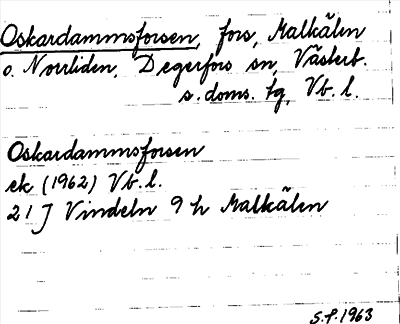 Oskardammsforsen, fors, Malkälen
o. Norrliden, Degerfors sn, Västerb.
s. doms. tg, Vb. l.
Oskardammsforsen
ek (1962) Vb. l.
21 J Vindeln 9 h Malkälen
S.f. 1963